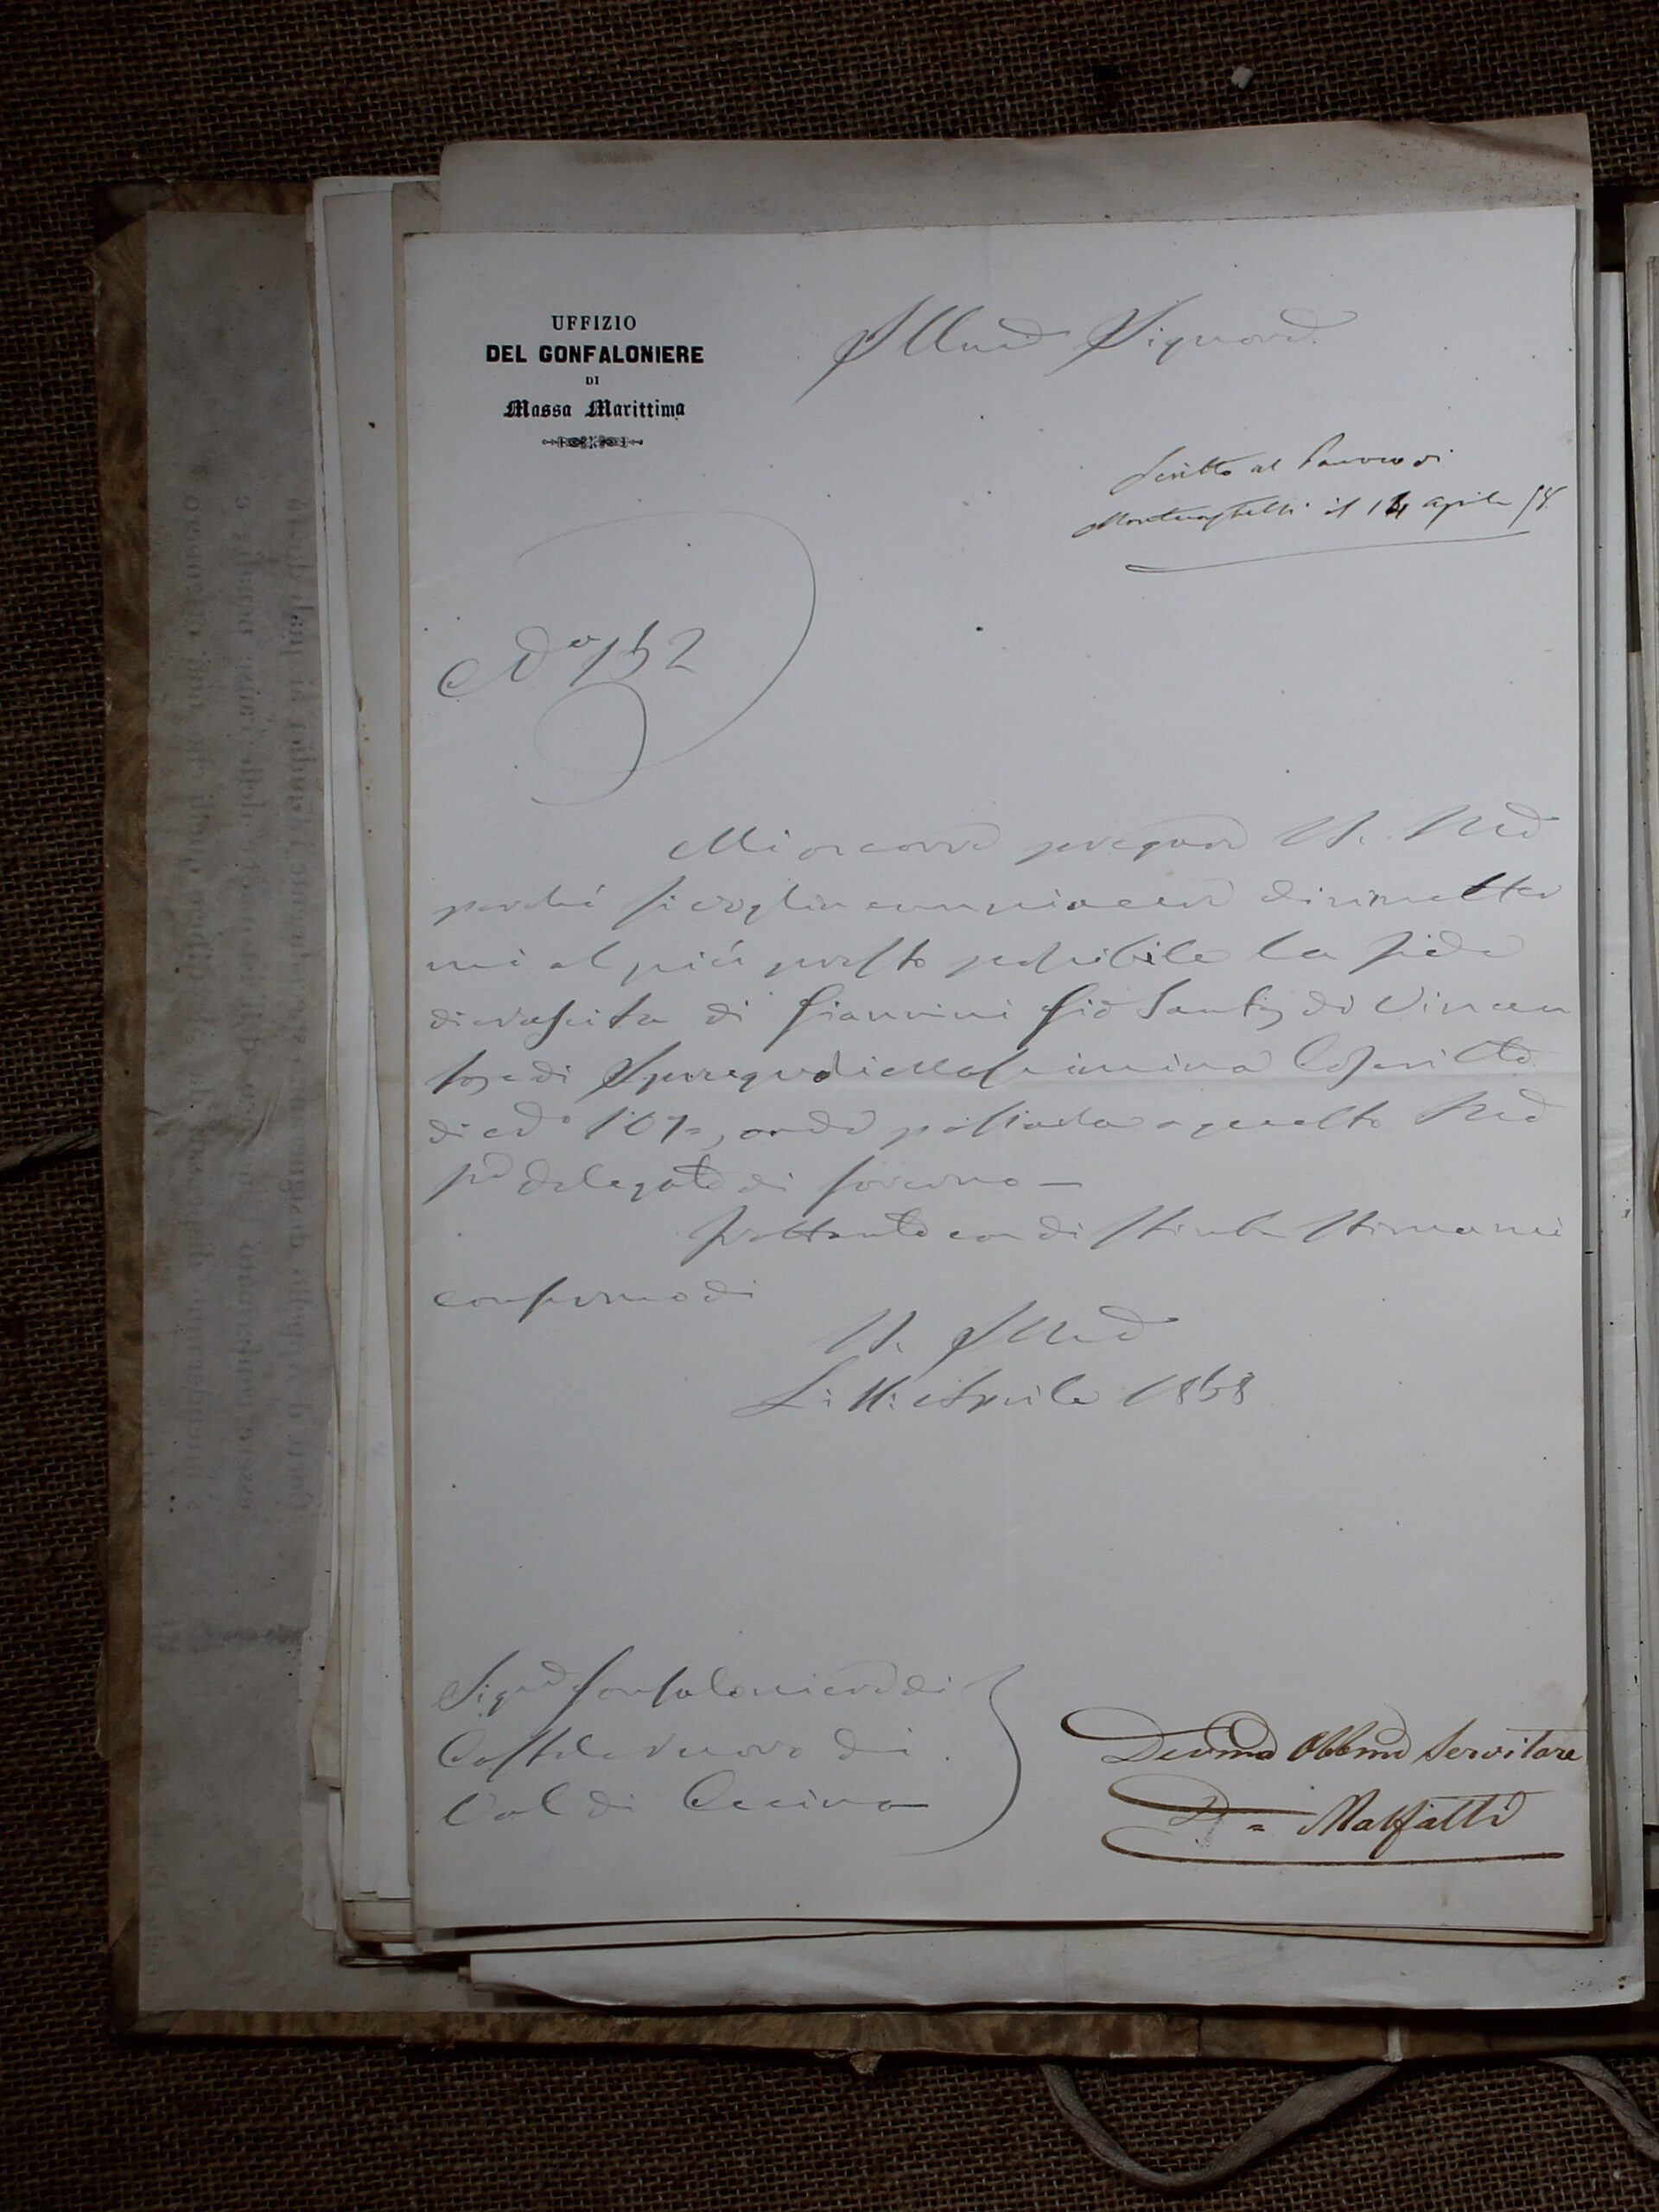 UFFIZIO
DEL GONFALONIERE
DI
Massa Marittima
Illmo Signore
Scritto al Parroco di
il 14 Aprile 58
No 152
Mi occorre pregare V. Illma
perché si voglia compiacere di rimetter
mi al più presto possibile la fede
di nascita di Giannini Gio Santi di Vincen
di
di No 107, onde a questo
Delegato di Governo —
Frattanto con distinta stima mi
confermo di
V. Illma
Li 11: Aprile 1858
Sigre Gonfaloniere di
Castelnuovo di
Val di Cecina
Devmo Obbmo Servitore
D = Malfatti